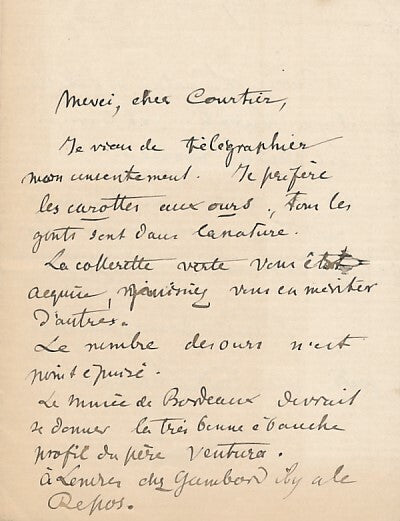 Merci, cher Courtier,
Je vien de télégraphier
mon consentement. Je préfère
les carottes aux ours, tous les
goûts sont dans la nature.
La collerette verte vous
acquise, vous en mériter
d'autres.
Le nombre des ours n'est
point épuisé.
Le musée de Bordeaux devrait
se donner la très bonne ébauche
profil du père Ventura.
à Londres chez Gambard il y a le
Repos.